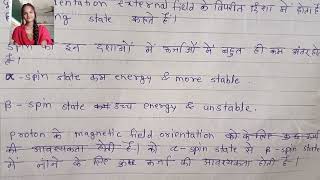 orientation external field के विपरीत दिशा में होता है
state कहते हैं।
Spin की इन दशाओं में ऊर्जाओं में बहुत ही कम अंतर
α-spin state कम energy & more stable.
β-spin state उच्च energy & unstable.
proton के magnetic field orientation को के लिए कुछ ऊर्जा
की आवश्यकता होती है। को α-spin state से β-spin state
में जाने के लिए कुछ ऊर्जा की आवश्यकता होती है।